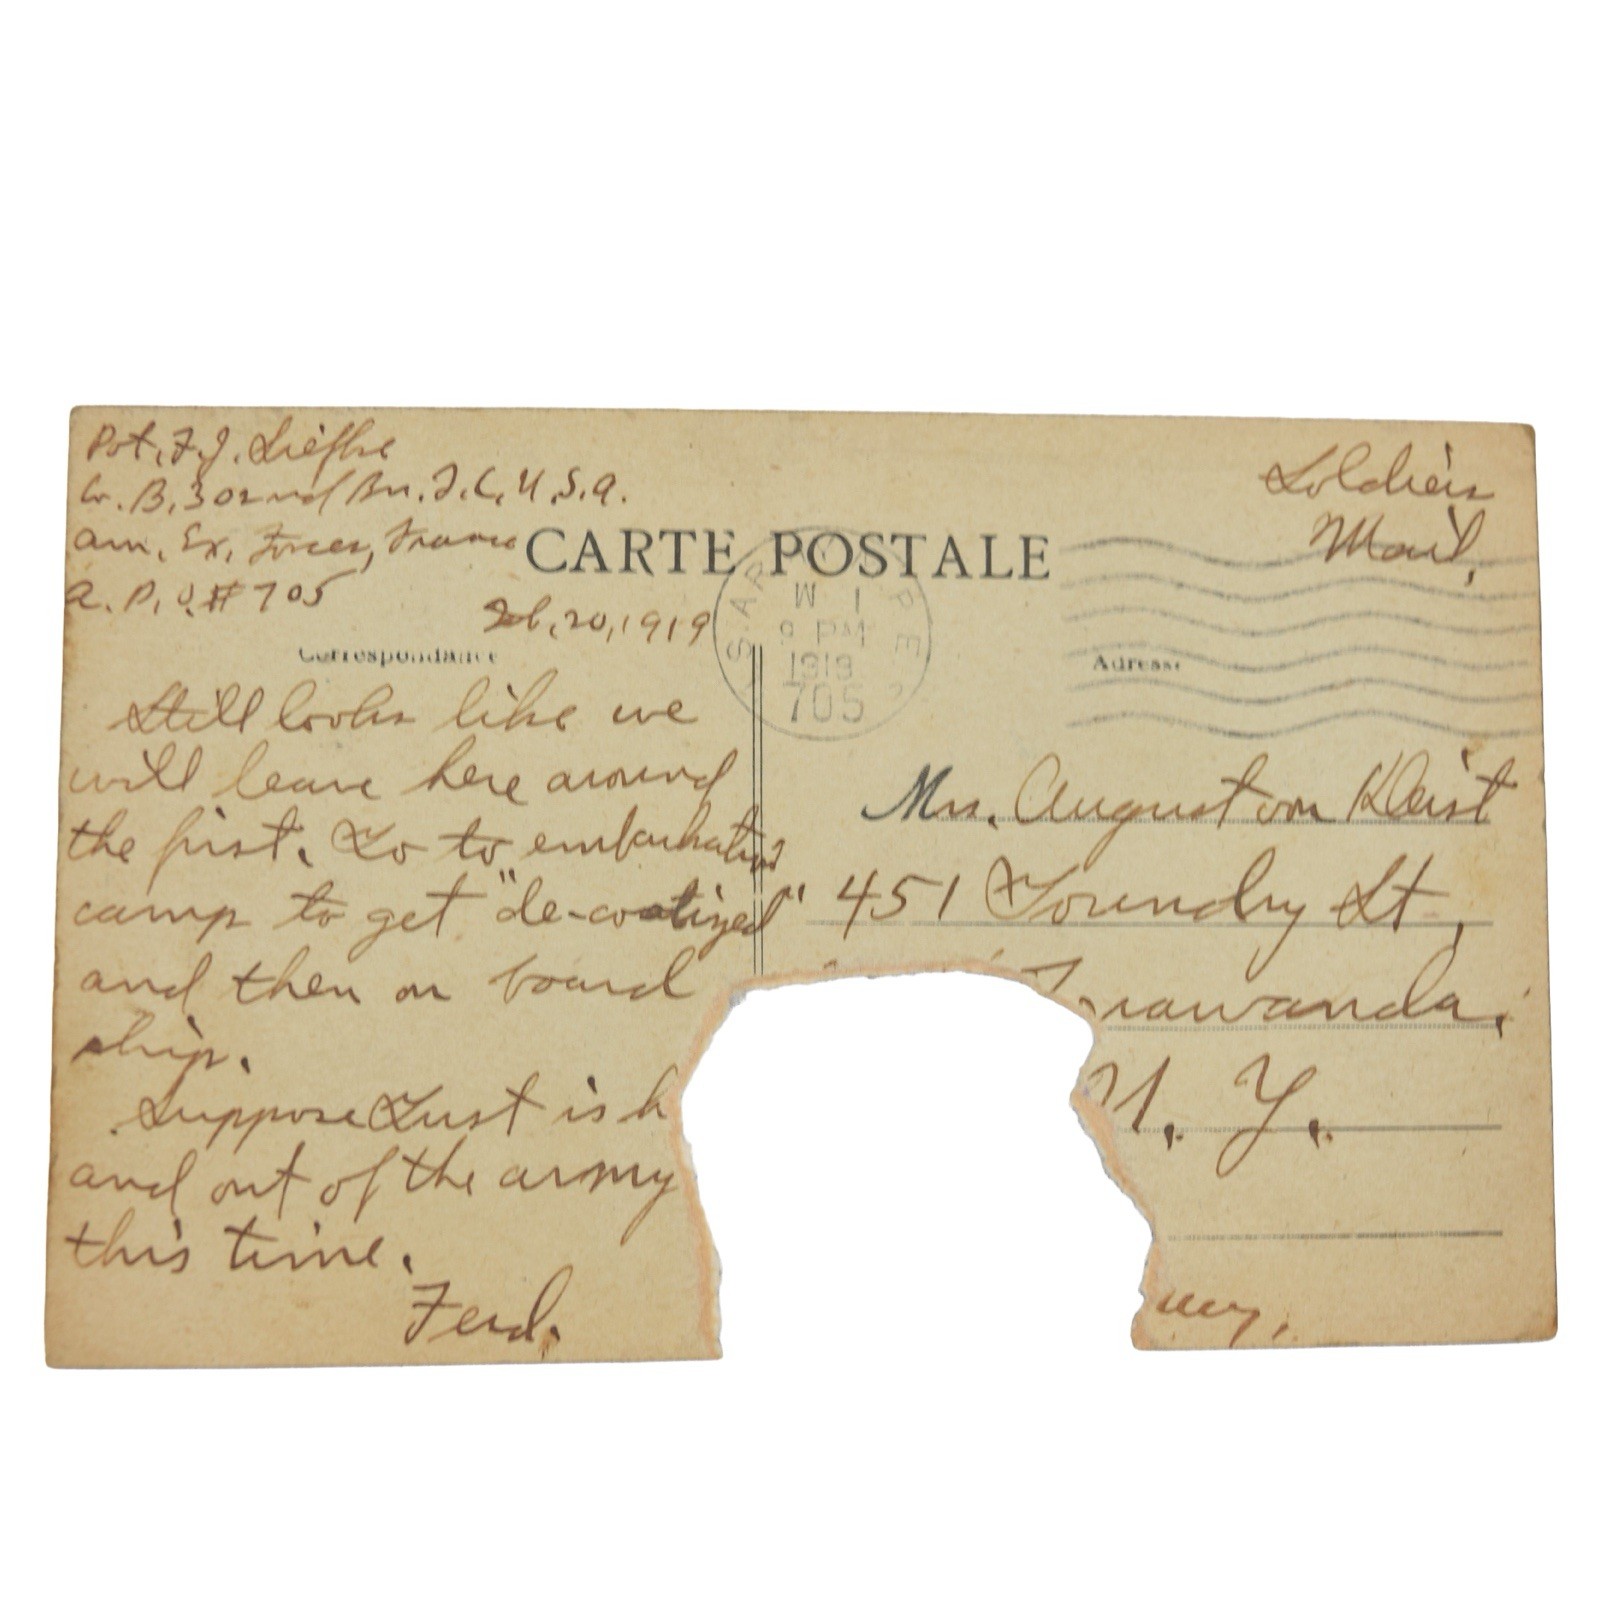 Pvt. F. J. Liefke
Co. B, 302nd Bn. T. C. U. S. A.
Am. Ex. Forces, France
A. P. O. # 705
Soldiers
Mail.
CARTE POSTALE
Feb. 20, 1919
1
9 PM
1919
705
Correspondance
Adresse
Still looks like we
will leave here around
the first. Go to embarkation
camp to get "de-cootized"
and then on board
ship.
Suppose Gust is h
and out of the army
this time.
Ferd.
Mrs. August von Kleist
451 Goundry St.,
nawanda.
N. Y.